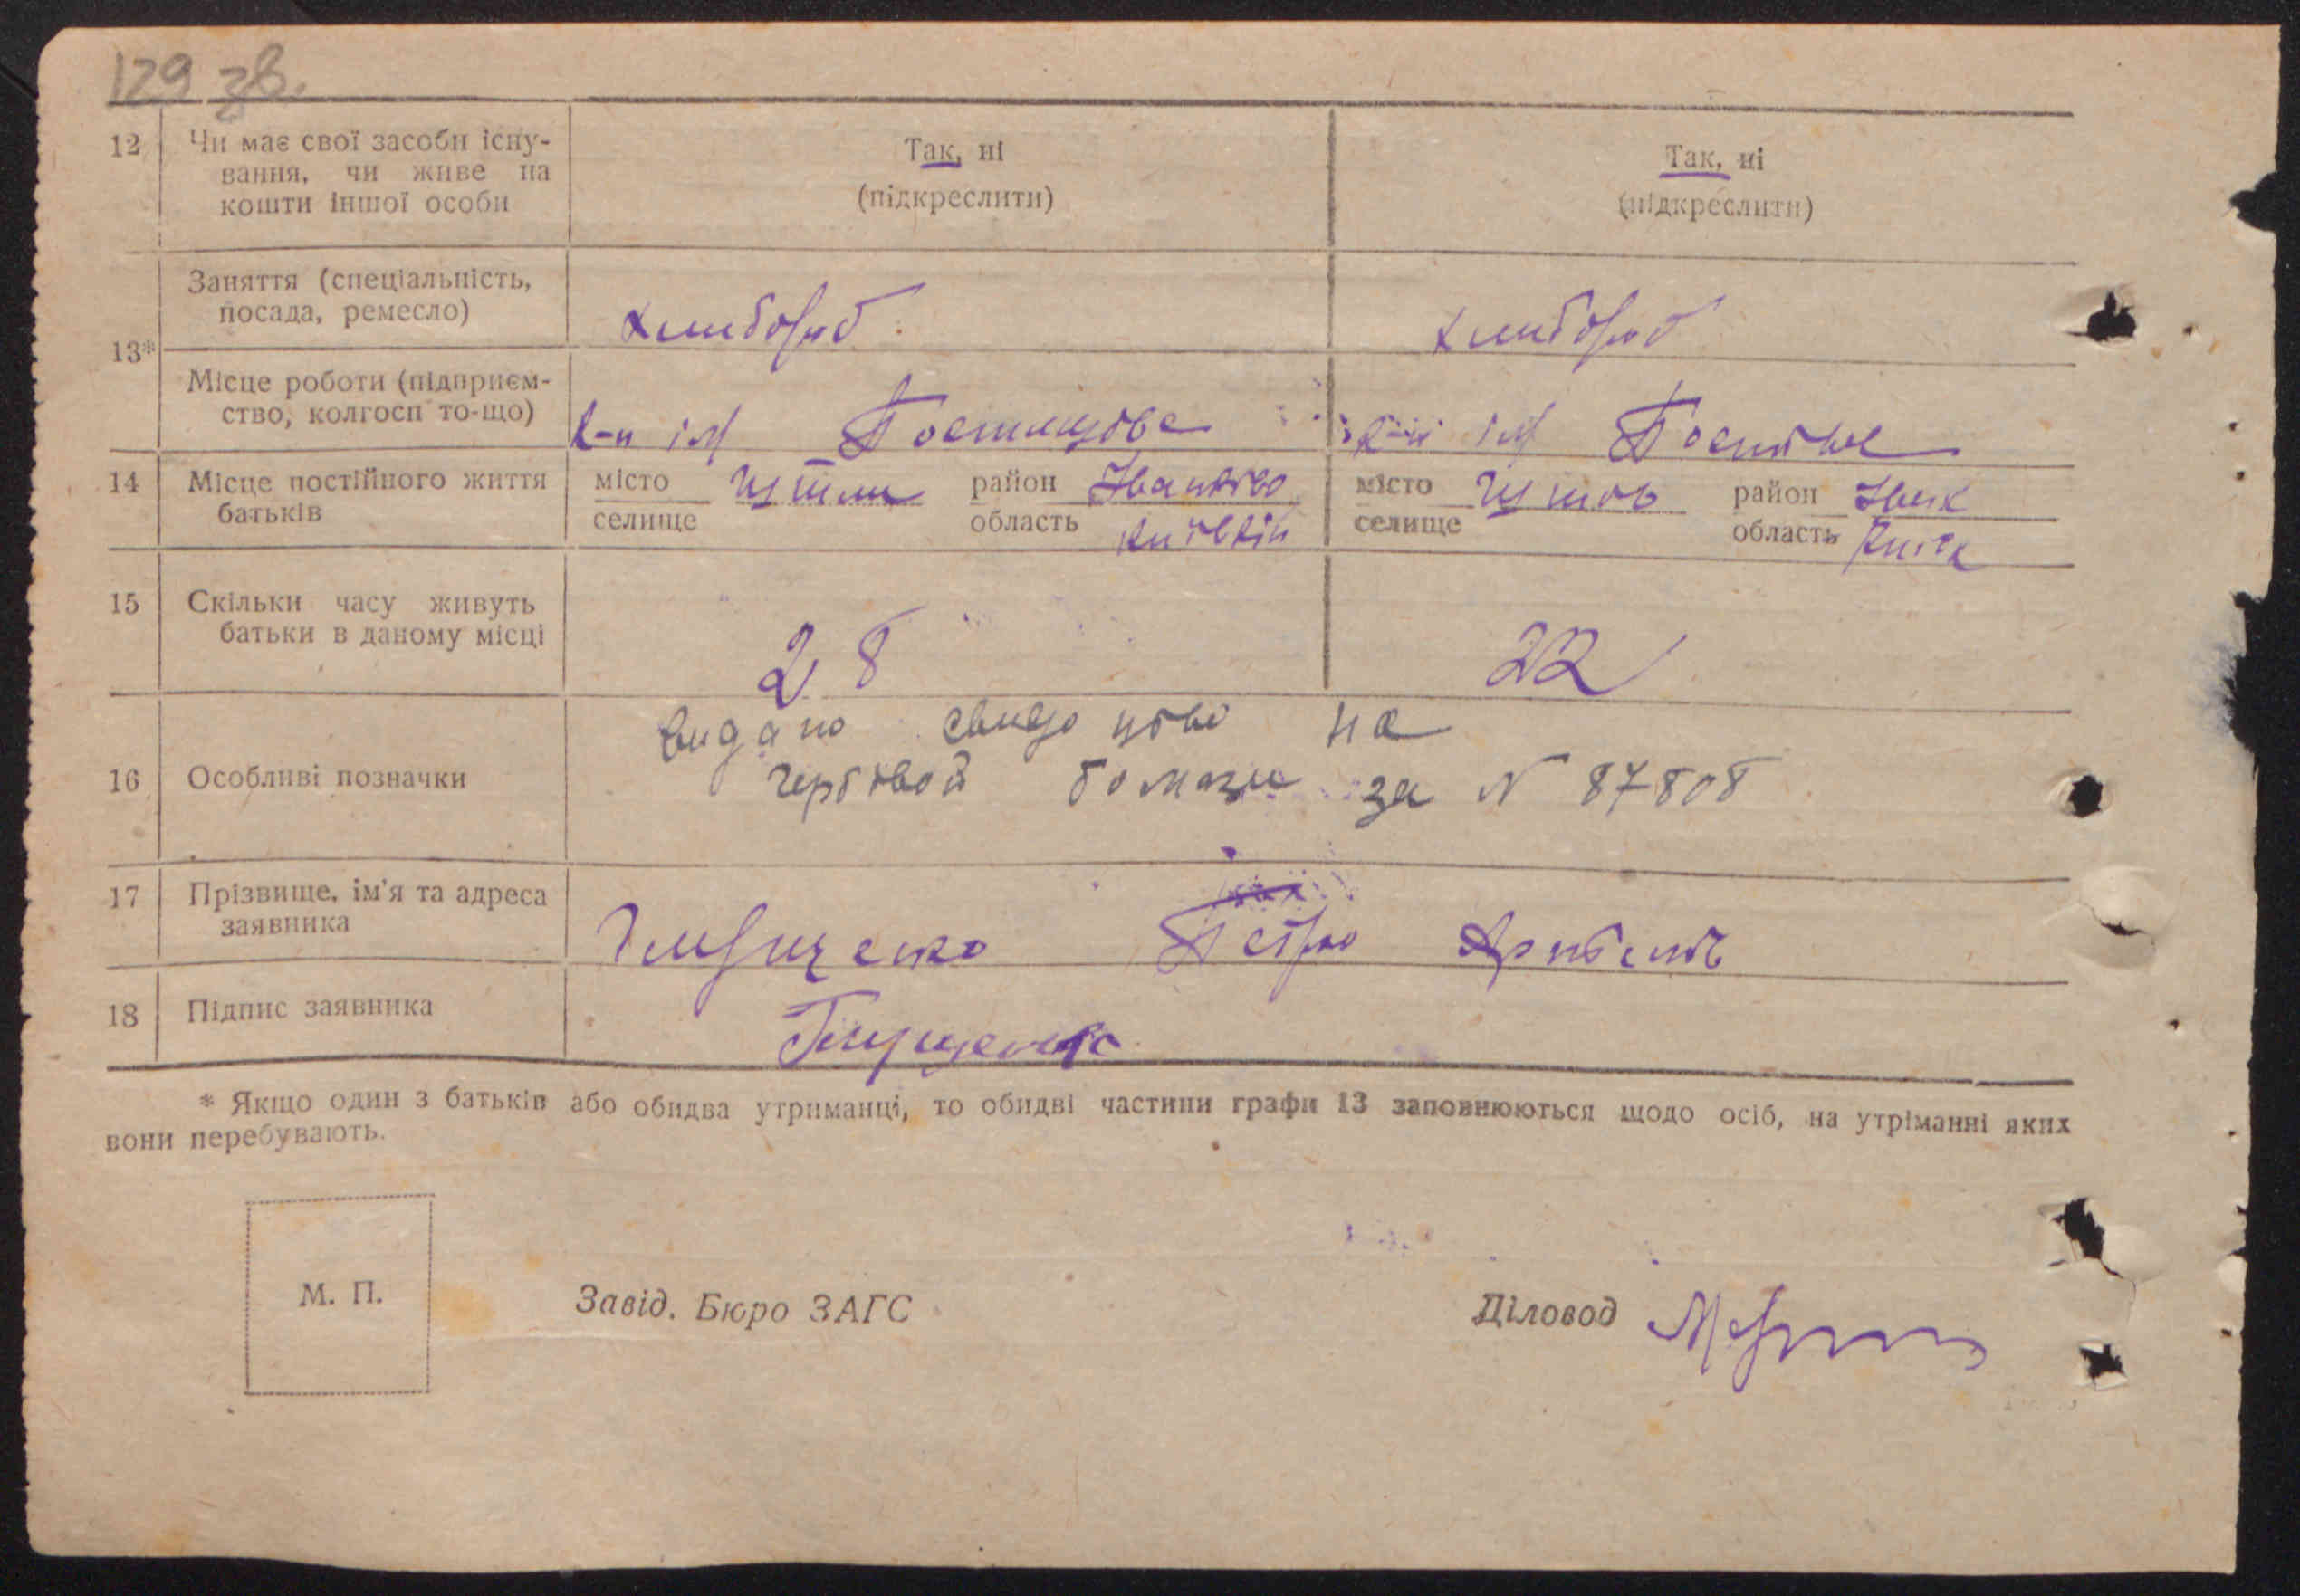 129 зв.
12 Чи має свої засоби існу-
вання, чи живе на
кошти іншої особи
Так, ні
(підкреслити)
Так, ні
(підкреслити)
13*
Заняття (спеціальність,
посада, ремесло)
хлибороб
хлибороб
Місце роботи (підприєм-
ство, колгосп то-що)
к-п ім Постишова
к-п ім
14 Місце постійного життя
батьків
місто
селище
район
область Київскій
місто
селище
район
область
15 Скільки часу живуть
батьки в даному місці
28
22
16 Особливі позначки
видано на
бомази за N 87808
17 Прізвище, ім'я та адреса
заявника
Петро
18 Підпис заявника
* Якщо один з батьків або обидва утриманці, то обидві частини графи 13 заповнюються щодо осіб, на утріманні яких
вони перебувають.
М. П.
Завід. Бюро ЗАГС
Діловод